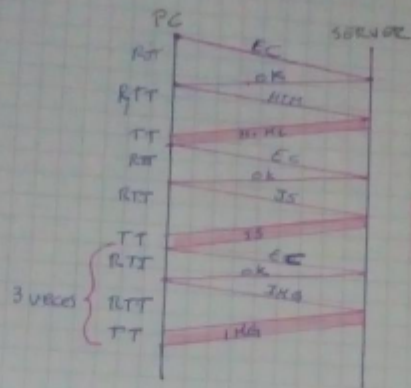 PC
SERVER
RTT
EC
OK
RTT
HTM
TT
HTML
RTT
EC
OK
RTT
JS
TT
JS
RTT
EC
OK
3 veces
RTT
IMG
TT
IMG